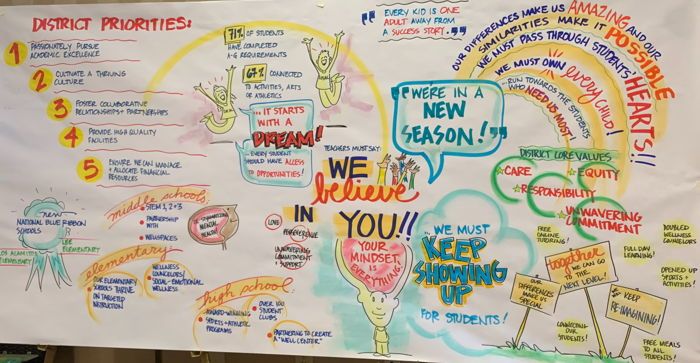 DISTRICT PRIORITIES:
1 PASSIONATELY PURSUE
ACADEMIC EXCELLENCE
2 CULTIVATE A THRIVING
CULTURE
3 FOSTER COLLABORATIVE
RELATIONSHIPS + PARTNERSHIPS
4 PROVIDE HIGH QUALITY
FACILITIES
5 ENSURE WE CAN MANAGE
+ ALLOCATE FINANCIAL
RESOURCES
71% OF STUDENTS
HAVE COMPLETED
A-G REQUIREMENTS
67% CONNECTED
TO ACTIVITIES, ARTS
OR ATHLETICS
... IT STARTS
WITH A
DREAM!
... EVERY STUDENT
SHOULD HAVE ACCESS
TO OPPORTUNITIES!
"EVERY KID IS ONE
ADULT AWAY FROM
A SUCCESS STORY."
"WERE IN A
NEW
SEASON!"
OUR DIFFERENCES MAKE US AMAZING AND OUR
SIMILARITIES MAKE IT POSSIBLE
WE MUST PASS THROUGH STUDENTS' HEARTS!!
WE MUST OWN every CHILD!
... RUN TOWARDS THE STUDENTS
WHO NEED US MOST!
TEACHERS MUST SAY:
WE
believe
IN
YOU!!
DISTRICT CORE VALUES
CARE
EQUITY
RESPONSIBILITY
UNWAVERING
COMMITMENT
new
NATIONAL BLUE RIBBON
SCHOOLS
LOS ALAMITOS
ELEMENTARY
LEE
ELEMENTARY
middle schools
STEM 1, 2 + 3
PARTNERSHIP
WITH
WELLSPACES
DE-STIGMATIZING
MENTAL
HEALTH!
elementary
OUR ELEMENTARY
SCHOOLS THRIVE
ON TARGETED
INSTRUCTION
WELLNESS
COUNSELORS/
SOCIAL-EMOTIONAL
WELLNESS
high school
AWARD-WINNING
SPORTS + ATHLETIC
PROGRAMS
OVER 100
STUDENT
CLUBS
PARTNERING TO CREATE
A "WELL CENTER"
LOVE
PERSEVERANCE
UNWAVERING
COMMITMENT
+ SUPPORT
YOUR
MINDSET
IS
EVERYTHING!
... WE MUST
KEEP
SHOWING
UP
FOR STUDENTS!
FREE
ONLINE
TUTORING!
FULL-DAY
LEARNING!
DOUBLED
WELLNESS
COUNSELORS
OPENED UP
SPORTS +
ACTIVITIES!
OUR
DIFFERENCES
MAKE US
SPECIAL
together
WE CAN GO
TO THE
NEXT LEVEL!
KEEP
RE-IMAGINING!
CONNECTING
OUR
STUDENTS!
FREE MEALS
TO ALL
STUDENTS!